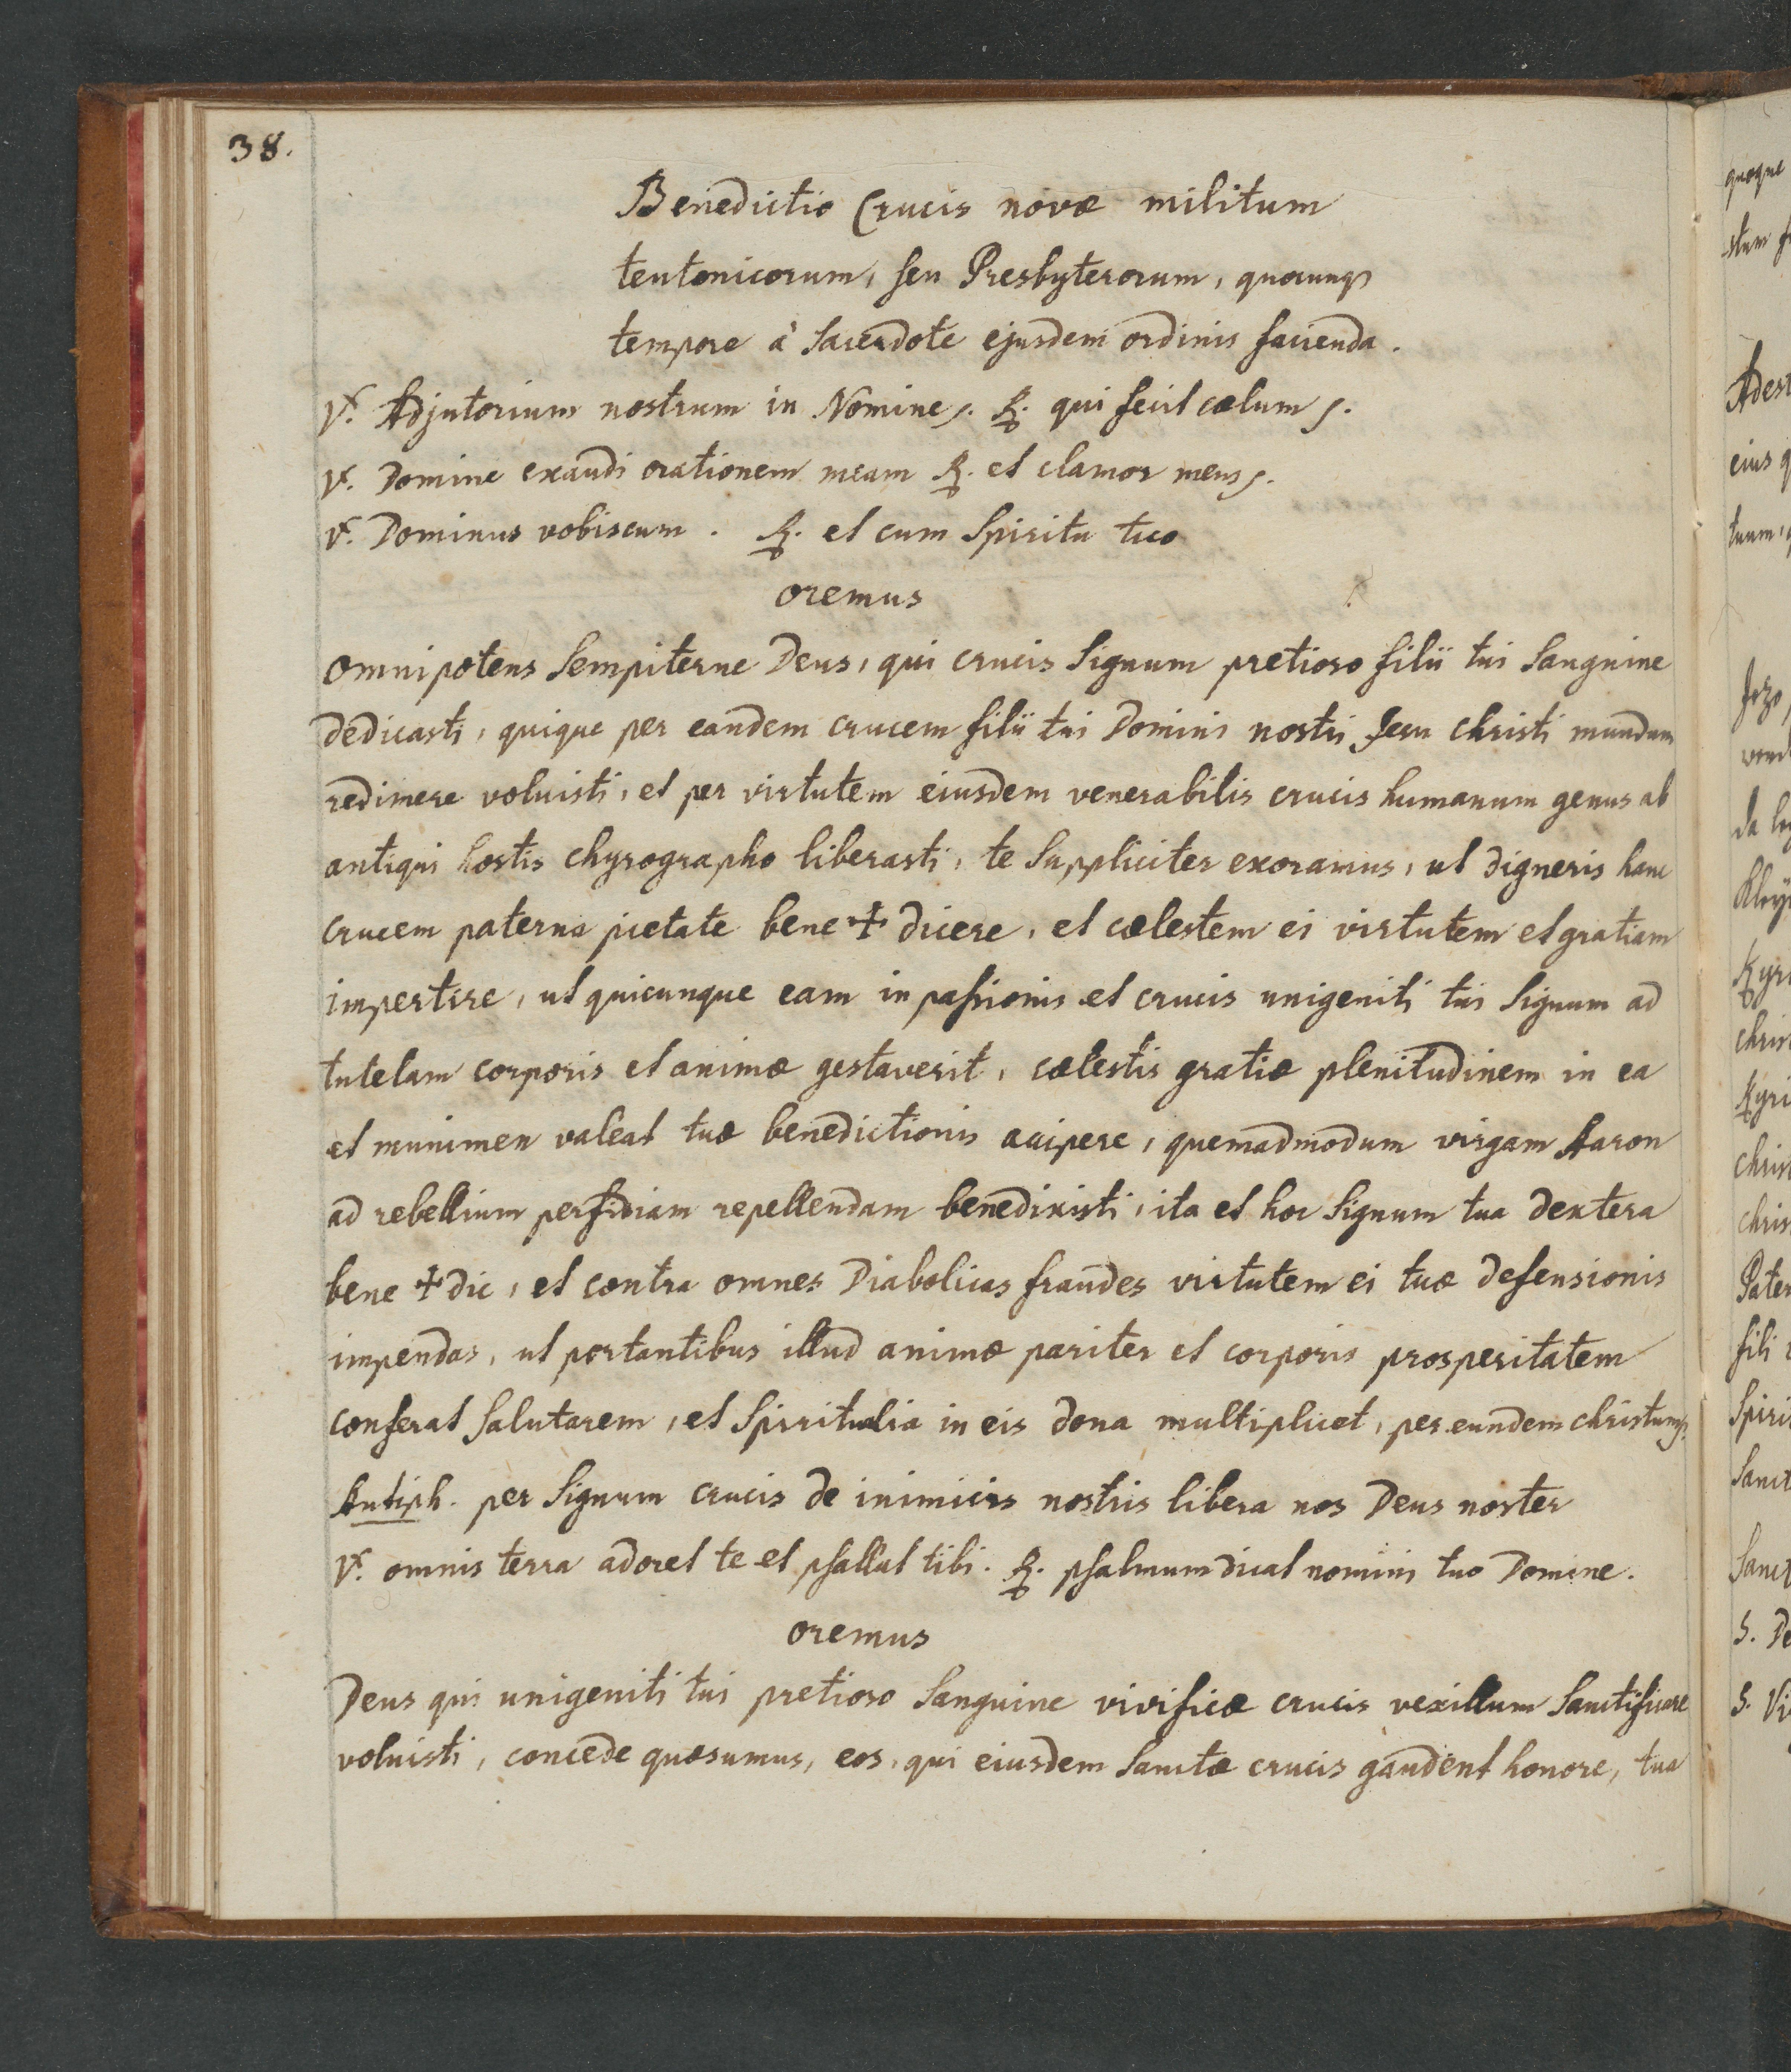 38.
Benedictio Crucis novæ militum
teutonicorum, seu Presbyterorum, quocunq3
tempore à Sacerdote ejusdem ordinis facienda.
℣. Adjutorium nostrum in Nomine ꝭ. ℟. qui fecit cælum ꝭ.
℣. Domine exaudi orationem meam ℟. et clamor meus ꝭ.
℣. Dominus vobiscum. ℟. et cum Spiritu tuo
oremus
omnipotens Sempiterne Deus, qui crucis Signum pretioso filii tui Sanguine
dedicasti, quique per eandem crucem filii tui Domini nostri Jesu christi mundum
redimere voluisti, et per virtutem eiusdem venerabilis crucis humanum genus ab
antiqui hostis chyrographo liberasti, te Suppliciter exoramus, ut digneris hanc
crucem paterna pietate bene ✝ dicere, et cælestem ei virtutem et gratiam
impertire, ut quicunque eam in passionis et crucis unigeniti tui Signum ad
tutelam corporis et animæ gestaverit, cælestis gratiæ plenitudinem in ea
et munimen valeat tuæ benedictionis accipere, quemadmodum virgam Aaron
ad rebellium perfidiam repellendam benedixisti, ita et hoc Signum tua dextera
bene ✝ dic, et contra omnes Diabolicas fraudes virtutem ei tuæ defensionis
impendas, ut portantibus illud animæ pariter et corporis prosperitatem
conferat Salutarem, et Spiritualia in eis dona multiplicet, per eundem christum ꝭ.
Antiph. per Signum crucis de inimicis nostris libera nos Deus noster
℣. omnis terra adoret te et psallat tibi. ℟. psalmum dicat nomini tuo Domine.
oremus
Deus qui unigeniti tui pretioso Sanguine vivificæ crucis vexillum Sanctificare
voluisti, concede quæsumus, eos, qui eiusdem Sanctæ crucis gaudent honore, tua
quoque
Adest
eius q
tuum,
Kyri
chris
Kyri
chris
chris
Pater
fili
Spiri
Sanct
Sanct
S. De
S. Vi